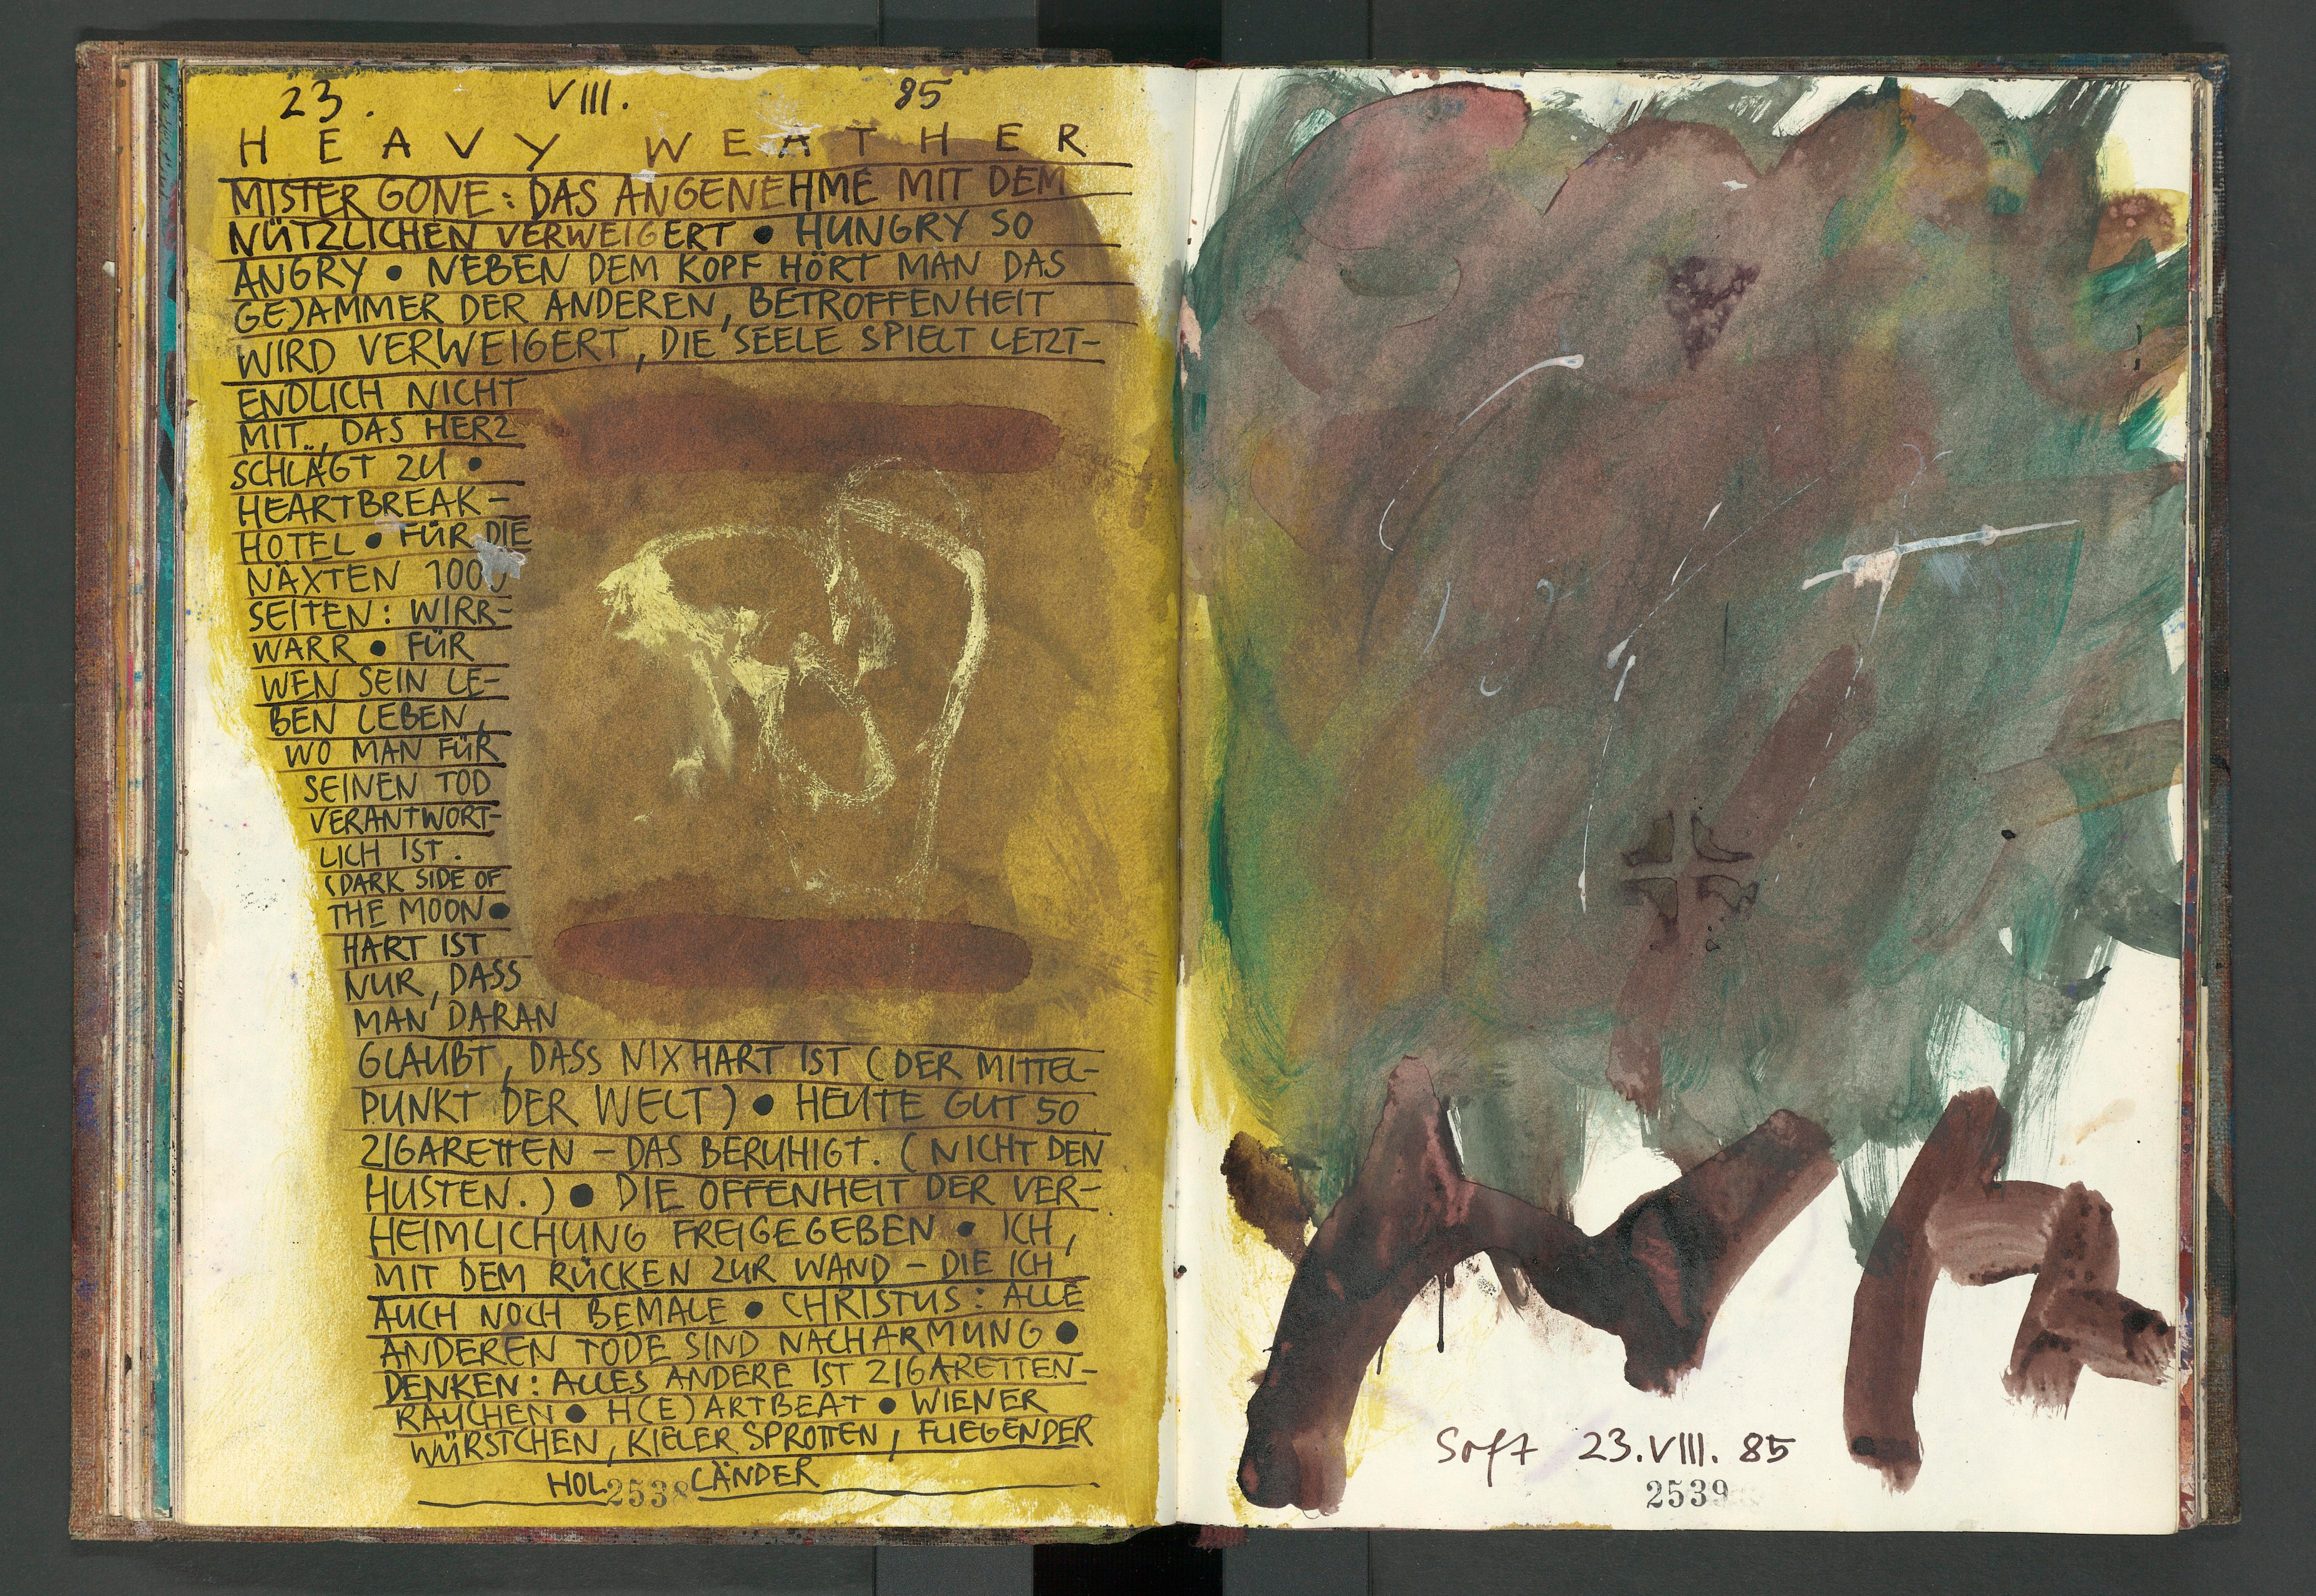 23. VIII. 85
HEAVY WEATHER
MISTER GONE: DAS ANGENEHME MIT DEM
NÜTZLICHEN VERWEIGERT ● HUNGRY SO
ANGRY ● NEBEN DEM KOPF HÖRT MAN DAS
GEJAMMER DER ANDEREN, BETROFFENHEIT
WIRD VERWEIGERT, DIE SEELE SPIELT LETZT-
ENDLICH NICHT
MIT, DAS HERZ
SCHLÄGT ZU ●
HEARTBREAK-
HOTEL ● FÜR DIE
NÄXTEN 1000
SEITEN: WIRR-
WARR ● FÜR
WEN SEIN LE-
BEN LEBEN,
WO MAN FÜR
SEINEN TOD
VERANTWORT-
LICH IST.
(DARK SIDE OF
THE MOON ●
HART IST
NUR, DASS
MAN DARAN
GLAUBT, DASS NIX HART IST (DER MITTEL-
PUNKT DER WELT) ● HEUTE GUT 50
ZIGARETTEN – DAS BERUHIGT. (NICHT DEN
HUSTEN.) ● DIE OFFENHEIT DER VER-
HEIMLICHUNG FREIGEGEBEN ● ICH,
MIT DEM RÜCKEN ZUR WAND – DIE ICH
AUCH NOCH BEMALE ● CHRISTUS: ALLE
ANDEREN TODE SIND NACHARMUNG ●
DENKEN: ALLES ANDERE IST ZIGARETTEN-
RAUCHEN ● H(E)ARTBEAT ● WIENER
WÜRSTCHEN, KIELER SPROTTEN, FLIEGENDER
HOLLÄNDER
2538
Soft 23.VIII.85
2539